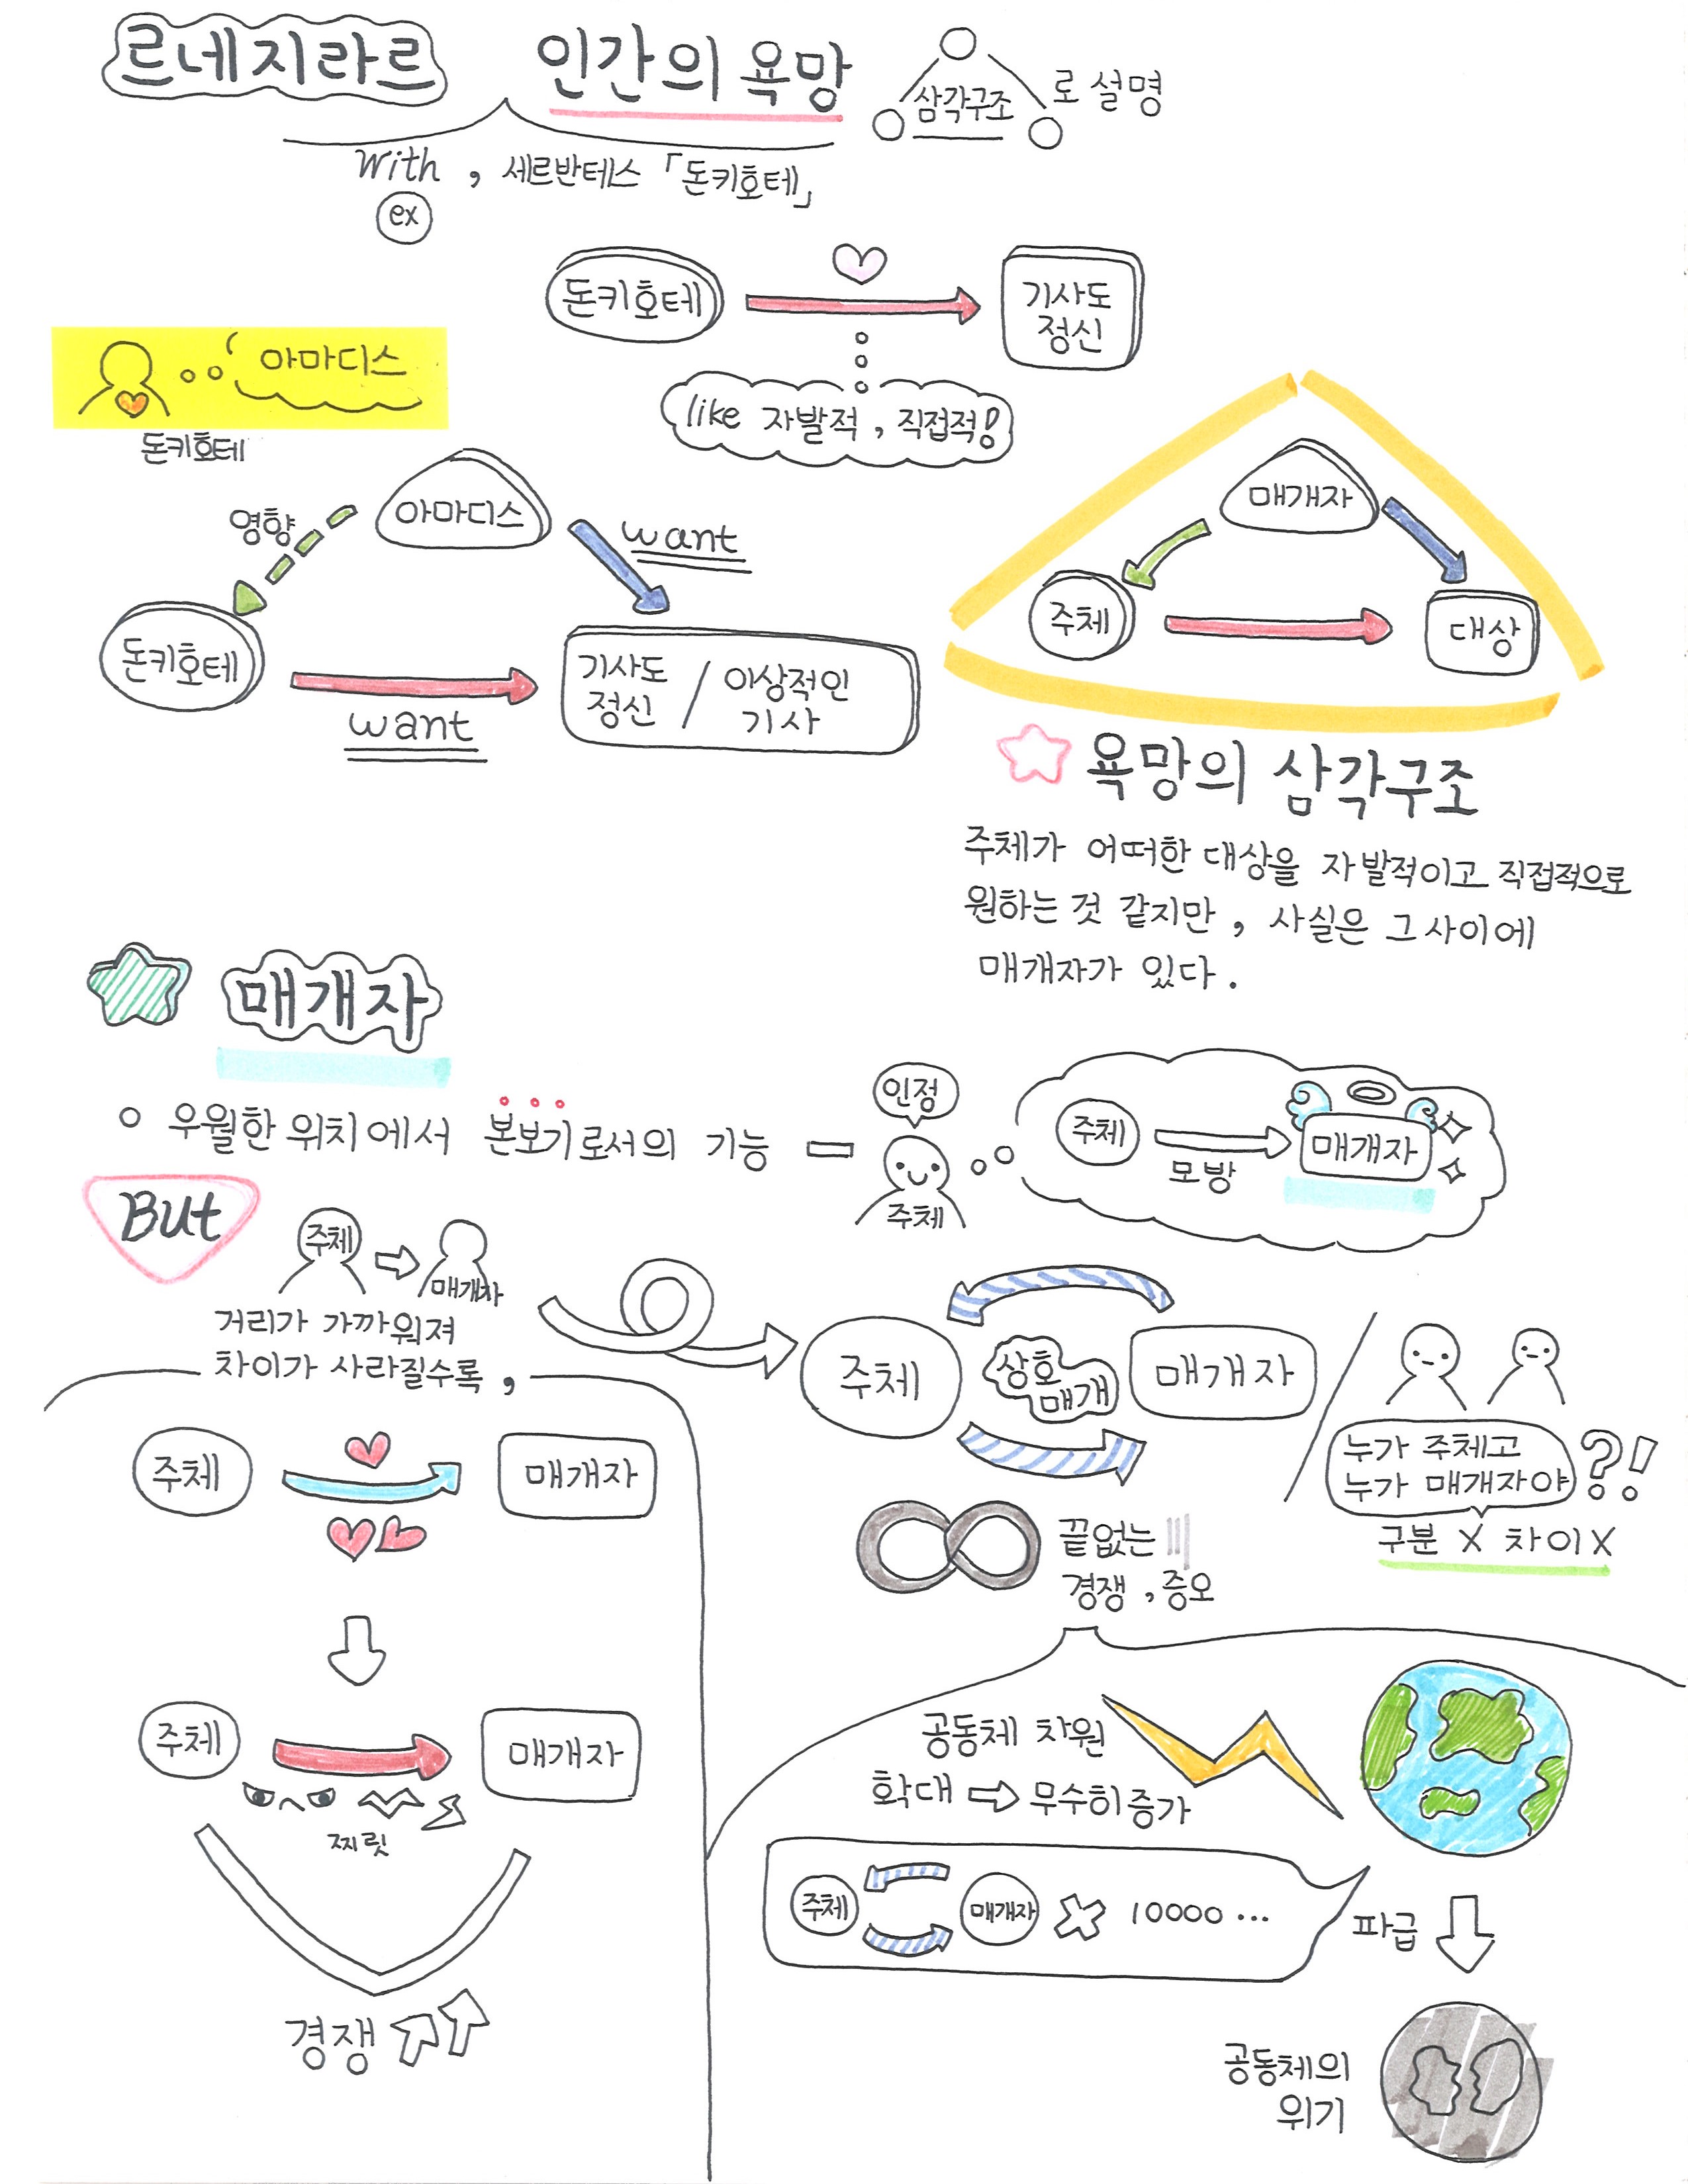 르네지라르 인간의 욕망 삼각구조 로 설명
With , 세르반테스 「돈키호테」
ex
돈키호테
기사도
정신
like 자발적, 직접적!
아마디스
돈키호테
영향
아마디스
want
돈키호테
want
기사도
정신 /
이상적인
기사
매개자
주체
대상
욕망의 삼각구조
주체가 어떠한 대상을 자발적이고 직접적으로
원하는 것 같지만, 사실은 그 사이에
매개자가 있다.
매개자
우월한 위치에서 본보기로서의 기능 -
인정
주체
주체
모방
매개자
But
주체
매개자
거리가 가까워져
차이가 사라질수록,
주체
매개자
주체
매개자
찌릿
경쟁
주체
상호
매개
매개자
누가 주체고
누가 매개자야 ?!
구분 X 차이 X
끝없는
경쟁, 증오
공동체 차원
확대 ⇨ 무수히 증가
주체
매개자
X 10000 ...
파급
공동체의
위기